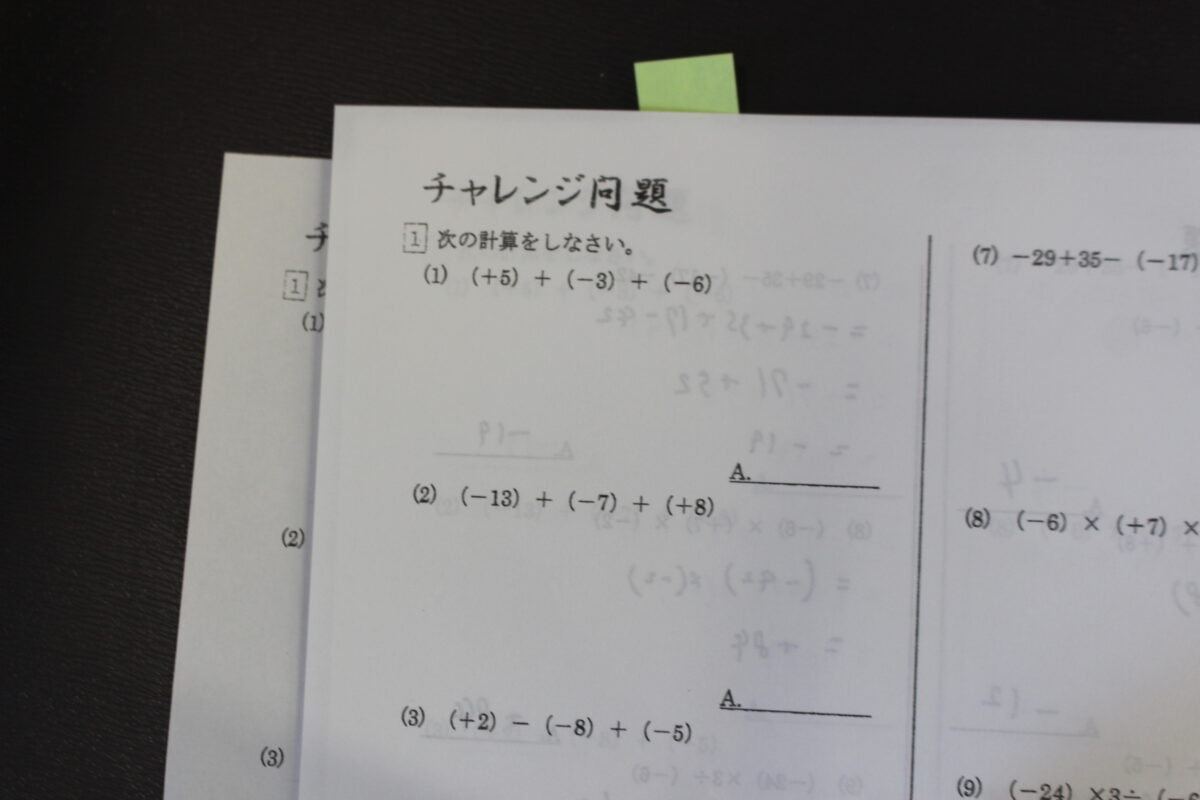 チャレンジ問題
1 次の計算をしなさい。
(1) (+5) + (-3) + (-6)
A.
(2) (-13) + (-7) + (+8)
A.
(3) (+2) - (-8) + (-5)
(7) -29+35- (-17)
(8) (-6) × (+7) ×
(9) (-24) ×3÷ (-6
チ
1
(1)
(2)
(3)